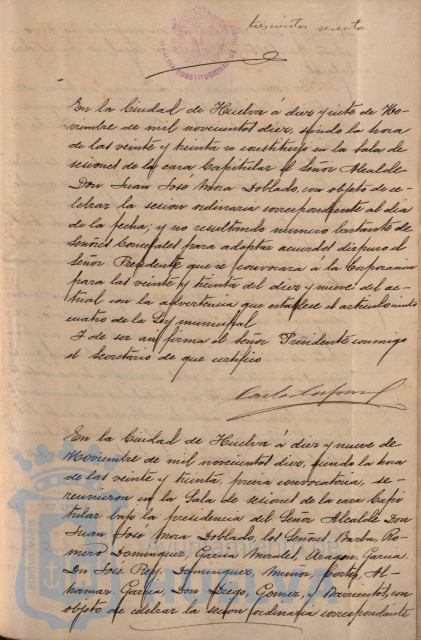 trescientos noventa
En la Ciudad de Huelva á diez y siete de No-
viembre de mil novecientos diez, siendo la hora
de las veinte y treinta se constituyó en la Sala de
sesiones de la casa Capitular el Señor Alcalde
Don Juan José Mora Doblado, con objeto de ce-
lebrar la sesion ordinaria correspondiente al dia
de la fecha; y no resultando número bastante de
Señores Concejales para adoptar acuerdos dispuso el
Señor Presidente que se convocara á la Corporacion
para las veinte y treinta del diez y nueve del ac-
tual con la advertencia que establece el articulo ciento
cuatro de la Ley municipal
Y de ser asi firma el señor Presidente conmigo
el Secretario de que certifico
En la Ciudad de Huelva á diez y nueve de
Noviembre de mil novecientos diez, siendo la hora
de las veinte y treinta, previa convocatoria, se
reunieron en la Sala de sesiones de la casa Capi-
tular bajo la presidencia del Señor Alcalde Don
Juan José Mora Doblado, los Señores Barba, Ro-
mero, Dominguez, Garcia Morales, Aragon, Garcia
Don José, Rey, Dominguez, Muñoz, Cortés, Al-
hamar, Garcia, Don Diego, Gomez, y Barrientos, con
objeto de celebrar la sesion ordinaria correspondiente